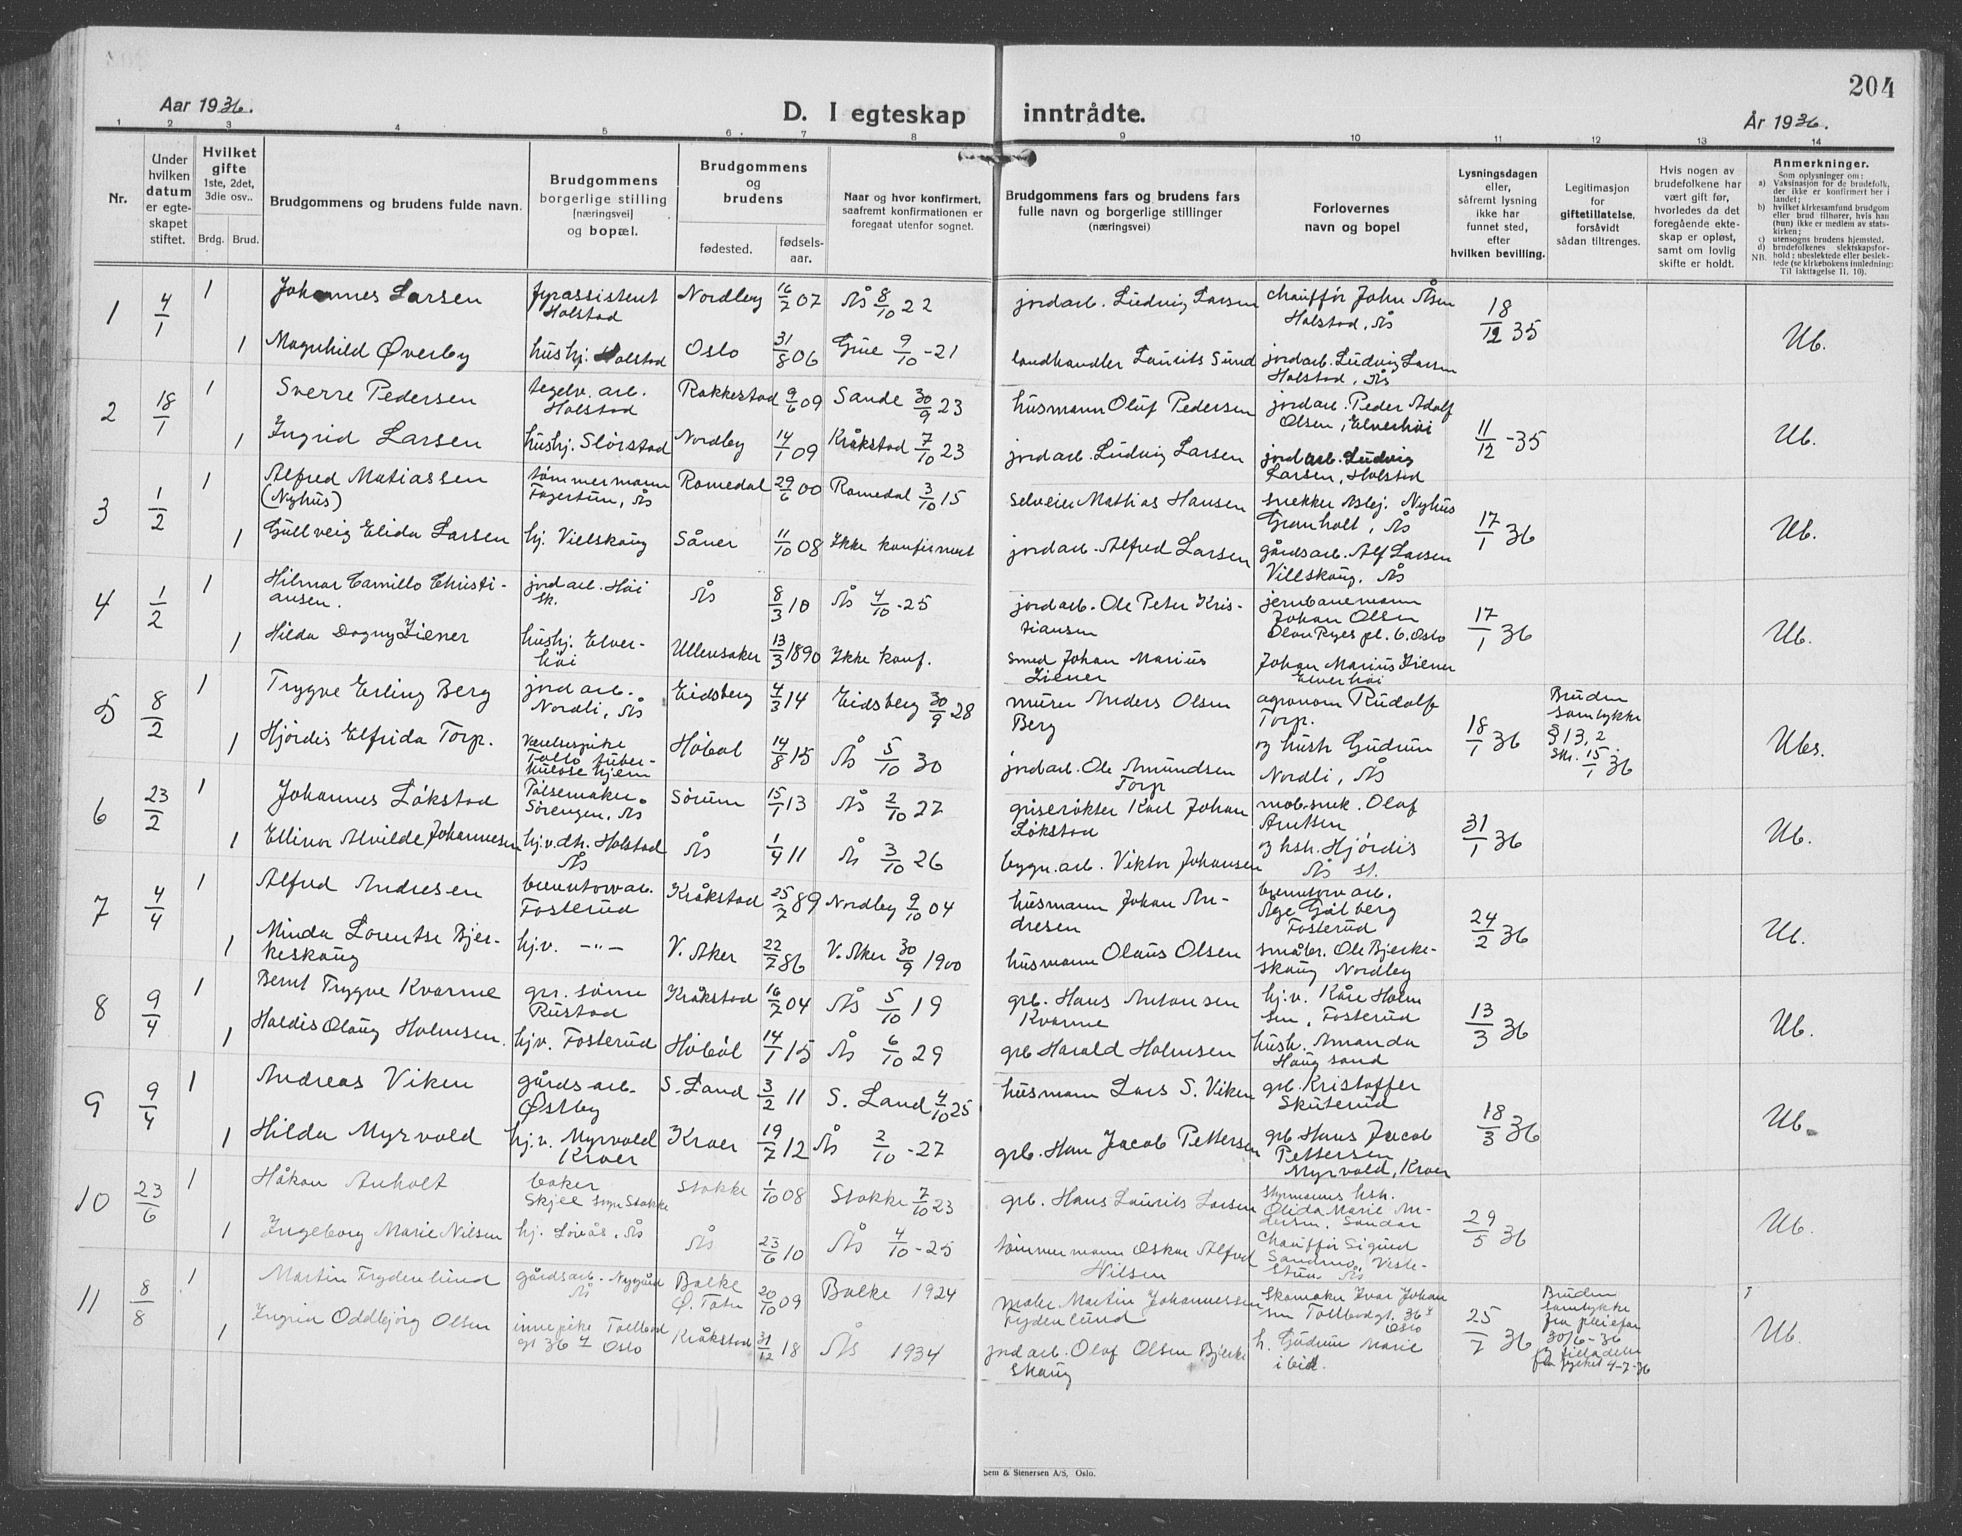 204
Aar 1936.
D. I egteskap inntrådte.
År 1936.
1 2 3 4 5 6 7 8 9 10 11 12 13 14
Nr.
Under hvilken datum er egte- skapet stiftet.
Hvilket gifte 1ste, 2det, 3die osv..
Brdg. Brud.
Brudgommens og brudens fulde navn.
Brudgommens borgerlige stilling (næringsvei) og bopæl.
Brudgommens og brudens
fødested.
fødsels- aar.
Naar og hvor konfirmert, saafremt konfirmationen er foregaat utenfor sognet.
Brudgommens fars og brudens fars fulle navn og borgerlige stillinger (næringsvei)
Forlovernes navn og bopel
Lysningsdagen eller, såfremt lysning ikke har funnet sted, efter hvilken bevilling.
Legitimasjon for giftetillatelse, forsåvidt sådan tiltrenges.
Hvis nogen av brudefolkene har vært gift før, hvorledes da det foregående ekte- skap er opløst, samt om lovlig skifte er holdt.
Anmerkninger.
Som oplysninger om:
a) Vaksinasjon for de brudefolk, der ikke er konfirmert her i landet;
b) hvilket kirkesamfund brudgom eller brud tilhører, hvis han (hun) ikke er medlem av stats- kirken;
c) utensogns brudens hjemsted.
d) brudefolkenes slektskapsfor- hold: ubeslektede eller beslek- tede (se kirkebokens innledning:
NB. Til iakttagelse II, 10).
1 4/1 1 Johannes Larsen fyrassistent Holstad Nordby 16/7 07 Ås 8/10 22 jordarb. Ludvig Larsen chauffør John Åsen Holstad, Ås 18/12 35 Ub.
1 Magnhild Øverby hushj. Holstad Oslo 31/8 06 Grue 9/10-21 landhandler Laurits Sund jordarb. Ludvig Larsen Holstad, Ås
2 18/1 1 Sverre Pedersen teglv. arb. Holstad Rakkestad 9/6 09 Sande 30/9 23 husmann Oluf Pedersen jordarb. Peder Adolf Olsen, Elverhøi 11/12-35 Ub.
1 Ingrid Larsen hushj. Slørstad Nordby 14/1 09 Kråkstad 7/10 23 jordarb. Ludvig Larsen jordarb. Ludvig Larsen, Holstad
3 1/2 1 Alfred Matiassen (Nyhus) tømmermann Fagertun, Ås Romedal 29/6 00 Romedal 3/10 15 selveier Mathias Hansen snekker Aslej. Nyhus Granholt, Ås 17/1 36 Ub.
1 Gullveig Elida Larsen hj. Vielskaug Såner 11/10 08 Ikke konfirmert jordarb. Alfred Larsen gårdsarb. Alf Larsen Villskaug, Ås
4 1/2 1 Hilmar Camillo Christi- ansen. jordarb. Høi sk. Ås 8/3 10 Ås 4/10-25 jordarb. Ole Peter Kris- tiansen jernbanemann Johan Olsen Olav Ryes pl. 6. Oslo 17/1 36 Ub.
1 Hilda Dagny Ziener hushj. Elver- høi Ullensaker 13/3 1890 Ikke konf. smed Johan Marius Ziener Johan Marius Ziener Elverhøi
5 8/2 1 Trygve Erling Berg jordarb. Nordli, Ås Eidsberg 4/3 14 Eidsberg 30/9 28 murer Anders Olsen Berg agronom Rudolf Torp. 18/1 36 Bruden samtykke § 13, 2 skr. 15/1 36 Ubs.
1 Hjørdis Elfrida Torp. Værelsespike Follo tuber- kuløse hjem Høbøl 14/8 15 Ås 5/10 30 jordarb. Ole Amundsen Torp og hustr Gudrun Nordli, Ås
6 23/2 1 Johannes Løkstad Pølsemaker Sørengen, Ås Sørum 15/1 13 Ås 2/10 27 griserøkter Karl Johan Løkstad møb.snek. Olaf Arntsen 31/1 36 Ub.
1 Ellinor Alvilde Johannesen hj.v.dtr. Holstad Ås Ås 1/4 11 Ås 3/10 26 bygn. arb. Viktor Johansen og hstr. Hjørdis Ås st.
7 4/4 1 Alfred Andresen brenntorvarb. Fosterud Kråkstad 25/7 89 Nordby 9/10 04 husmann Johan An- dresen brenntorv arb. Åge Gålberg Fosterud 24/2 36 Ub.
1 Minda Lorentse Bjer- keskaug hj.v. -"- V. Aker 22/7 86 V. Aker 30/9 1900 husmann Olaus Olsen småbr. Ole Bjerke- skaug Nordby
8 9/4 1 Bernt Trygve Kvarme gr. sønn Rustad Kråkstad 16/7 04 Ås 5/10 19 grb. Hans Antonsen Kvarme hj.v. Kåre Holm sen, Fosterud 13/3 36 Ub.
1 Haldis Olaug Holmsen. hjv. Fosterud Høbøl 14/1 15 Ås 6/10 29 grb Harald Holmsen hustr. Amanda Haugsand
9 9/4 1 Andreas Viken gårds-arb. Østby S. Land 3/2 11 S. Land 4/10 25 husmann Lars S. Viken grb. Kristoffer Skuterud 18/3 36 Ub.
1 Hilda Myrvold hj.v. Myrvold Kroer Kroer 19/7 12 Ås 2/10-27 grb. Hans Jacob Pettersen grb Hans Jacob Pettersen Myrvold, Kroer
10 23/6 1 Håkon Anholt baker Skjee sogn Stokke Stokke 1/10 08 Stokke 7/10 23 grb. Hans Laurits Larsen Styrmannes hstr. Olida Marie An- dersen, Sandar 29/5 36 Ub.
1 Ingeborg Marie Nilsen hj. Løvås, Ås Ås 23/6 10 Ås 4/10-25 tømmermann Oskar Alfred Nilsen Chauffør Sigurd Sandmo, Ås
11 8/8 1 Martin Frydenlund gårdsarb. Nygård Ås Balke Ø. Toten 20/10 09 Balke 1924 maler Martin Johannessen Frydenlund Skomaker Ivar Johan sen Tollbodgt. 36 Oslo 25/7 36 Bruden samtykke fra pleiefar 30/6-36 tilladelse fra fylket 4-7-36 Ub.
1 Ingrid Oddbjørg Olsen innepike Tollbod gt 36 Oslo Kråkstad 31/12 18 Ås 1934 jordarb. Olaf Olsen Bjerke skaug h. Gudrun Marie ibid.
Sem & Stenersen A/S, Oslo.